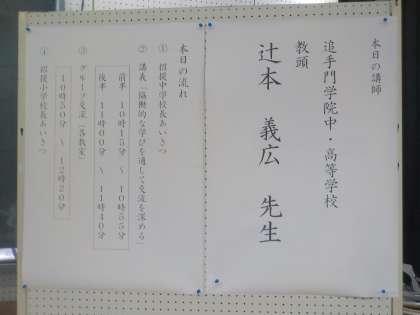 本日の講師
追手門学院中・高等学校
教頭
辻本 義広 先生
本日の流れ
① 招提中学校長あいさつ
② 講義「協働的な学びを通して交流を深める」
前半 10時15分 ~ 10時55分
後半 11時00分 ~ 11時40分
③ グループ交流（各教室）
10時50分 ~ 12時20分
④ 招提小学校長あいさつ